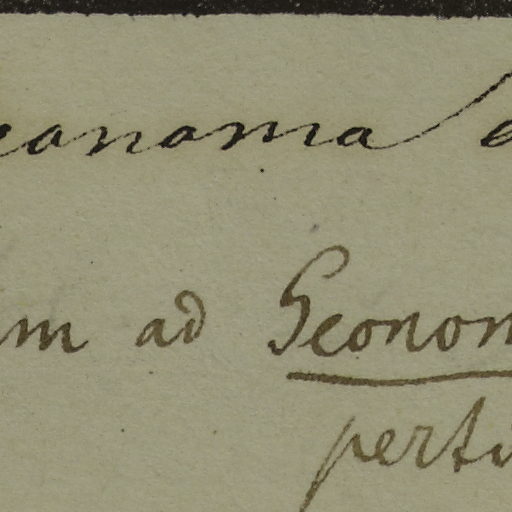 eanoma
m ad Geonom
perti